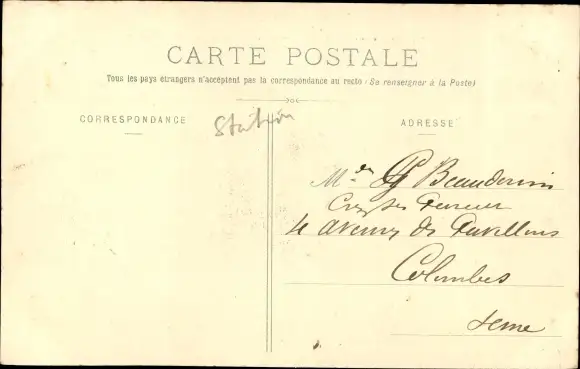 CARTE POSTALE
Tous les pays étrangers n'acceptent pas la correspondance au recto (Se renseigner à la Poste)
CORRESPONDANCE
Station
ADRESSE
Beaudouin
4 avenue de
Colombes
Seine